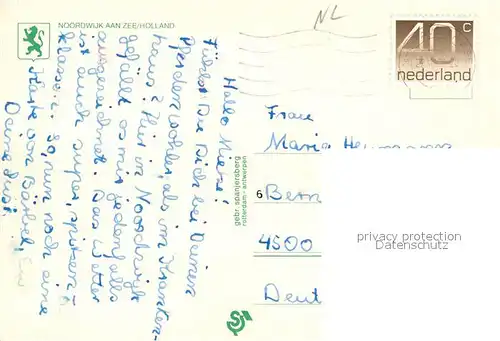 NOORDWIJK AAN ZEE/HOLLAND
NL
40 c
nederland
Hallo Mieze!
Fühlst Du Dich bei Deinen
Pferden wohler, als im Kranken-
haus? Hier in Noordwijk
gefällt es mir jedenfalls
ausgezeichnet. Das Wetter
ist auch super, spitzen-
klasse. So, nun noch eine
Karte von Bärbel,
Deine Susi
gebr. spanjersberg
rotterdam - antwerpen
Frau
Maria
6 Bern
4500
Deut
privacy protection
Datenschutz